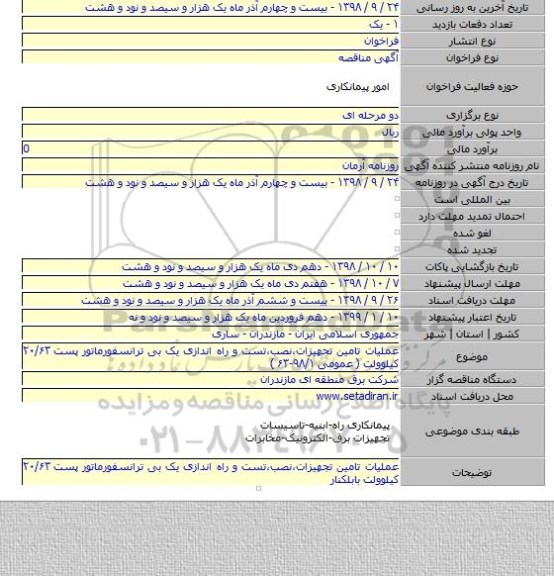 تاریخ آخرین به روز رسانی ۲۴ / ۹ / ۱۳۹۸ - بیست و چهارم آذر ماه یک هزار و سیصد و نود و هشت
تعداد دفعات بازدید ۱ - یک
نوع انتشار فراخوان
نوع فراخوان آگهی مناقصه
حوزه فعالیت فراخوان امور پیمانکاری
نوع برگزاری دو مرحله ای
واحد پولی برآورد مالی ریال
برآورد مالی 0
نام روزنامه منتشر کننده آگهی روزنامه آرمان
تاریخ درج آگهی در روزنامه ۲۴ / ۹ / ۱۳۹۸ - بیست و چهارم آذر ماه یک هزار و سیصد و نود و هشت
بین المللی است
احتمال تمدید مهلت دارد
لغو شده
تجدید شده
تاریخ بازگشایی پاکات ۱۰ / ۱۰ / ۱۳۹۸ - دهم دی ماه یک هزار و سیصد و نود و هشت
مهلت ارسال پیشنهاد ۷ / ۱۰ / ۱۳۹۸ - هفتم دی ماه یک هزار و سیصد و نود و هشت
مهلت دریافت اسناد ۲۶ / ۹ / ۱۳۹۸ - بیست و ششم آذر ماه یک هزار و سیصد و نود و هشت
تاریخ اعتبار پیشنهاد ۱۰ / ۱ / ۱۳۹۹ - دهم فروردین ماه یک هزار و سیصد و نود و نه
کشور | استان | شهر جمهوری اسلامی ایران - مازندران - ساری
موضوع عملیات تامین تجهیزات،نصب،تست و راه اندازی یک بی ترانسفورماتور پست ۲۰/۶۳
کیلوولت ( عمومی ۹۸/۱-۶۳ )
دستگاه مناقصه گزار شرکت برق منطقه ای مازندران
محل دریافت اسناد www.setadiran.ir
طبقه بندی موضوعی پیمانکاری راه-ابنیه-تاسیسات
تجهیزات برق-الکترونیک-مخابرات
توضیحات عملیات تامین تجهیزات،نصب،تست و راه اندازی یک بی ترانسفورماتور پست ۲۰/۶۳
کیلوولت بابلکنار
پایگاه اطلاع رسانی مناقصه و مزایده